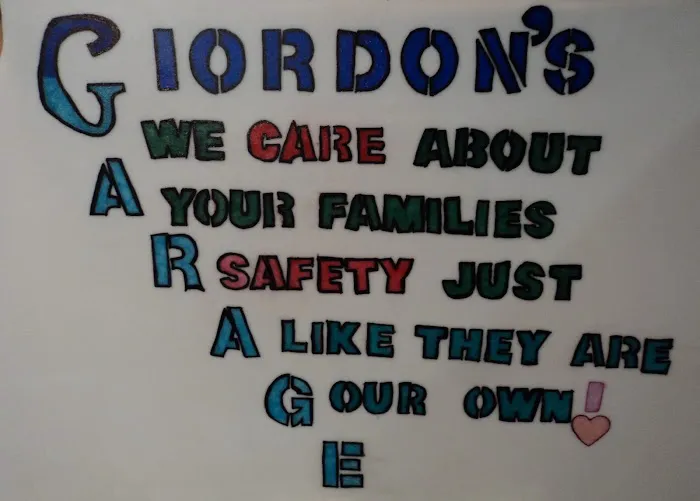 GIORDON'S
WE CARE ABOUT
A YOUR FAMILIES
R SAFETY JUST
A LIKE THEY ARE
G OUR OWN!
E